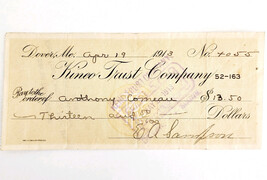 Dover, Me. Apr 19 1913 No. 4055
Kineo Trust Company 52-163
Pay to the
order of Anthony Comeau $13.50
Thirteen and Dollars